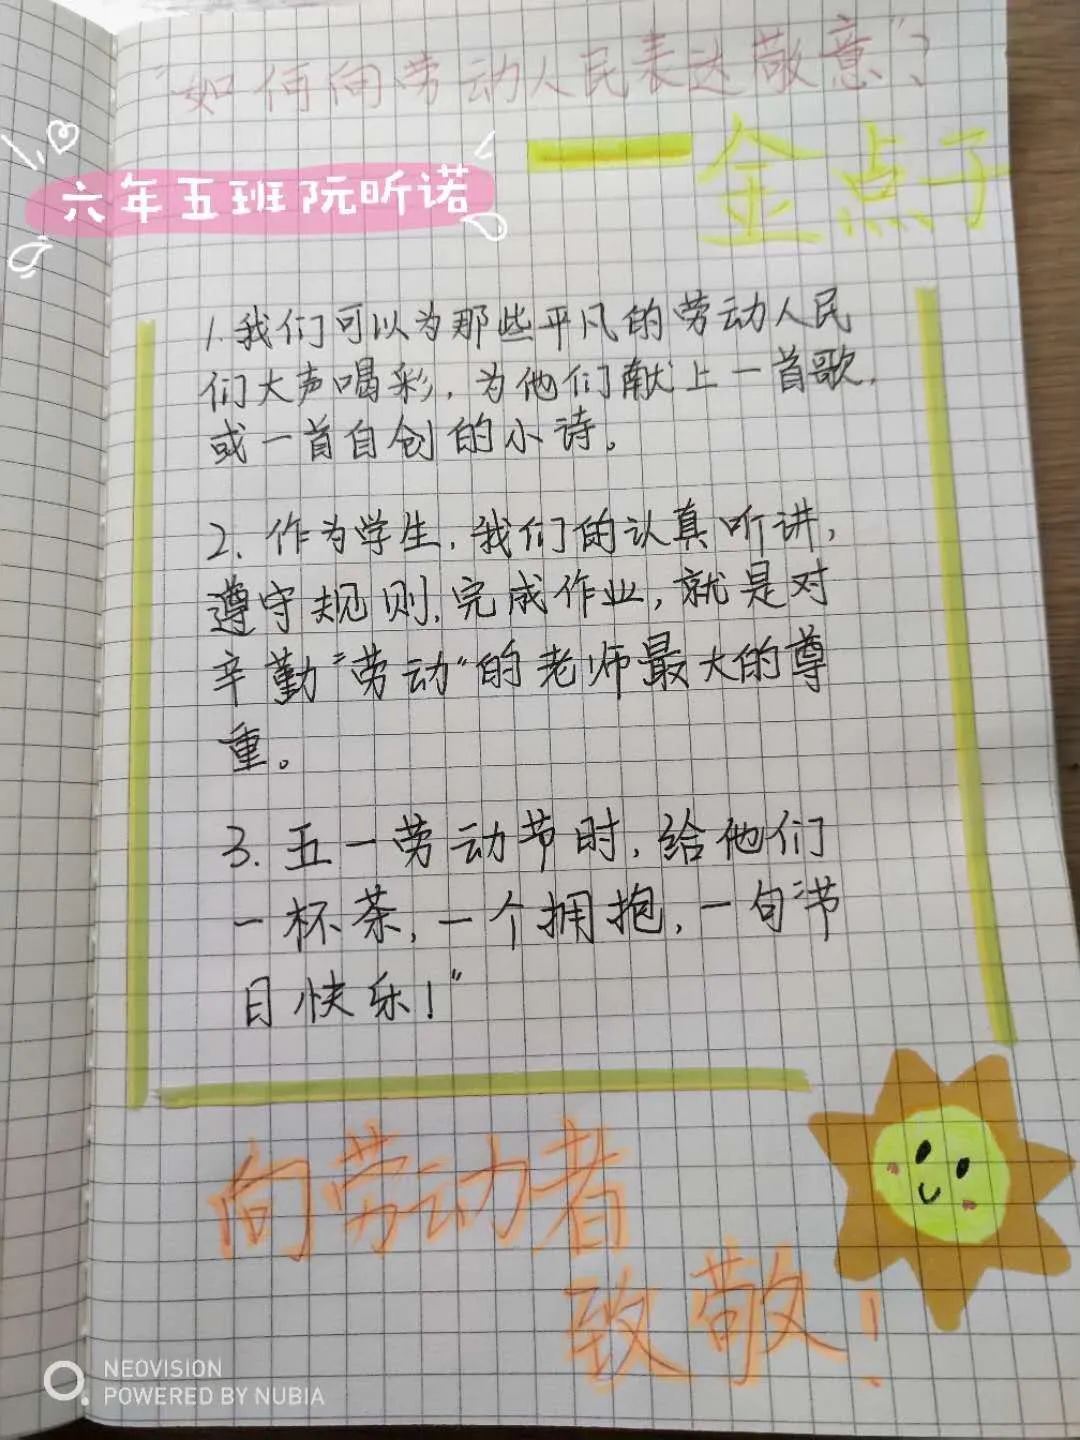 "如何向劳动人民表达敬意"?
——金点子
六年五班阮昕诺
1.我们可以为那些平凡的劳动人民
们大声喝彩,为他们献上一首歌,
或一首自创的小诗。
2.作为学生,我们的认真听讲,
遵守规则,完成作业,就是对
辛勤"劳动"的老师最大的尊
重。
3.五一劳动节时,给他们
一杯茶,一个拥抱,一句"节
日快乐!"
向劳动者
致敬!
NEOVISION
POWERED BY NUBIA